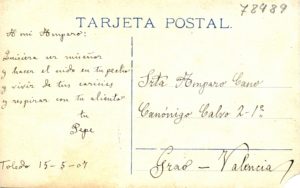 78989
TARJETA POSTAL
A mi Amparo:
Quisiera ser
y hacer el nido en tu pecho
y vivir de tus caricias
y respirar con tu aliento
tu
Pepe
Toledo 15-5-07
Srta Amparo Cano
Canónigo Calvo 2-1º
Grao - Valencia